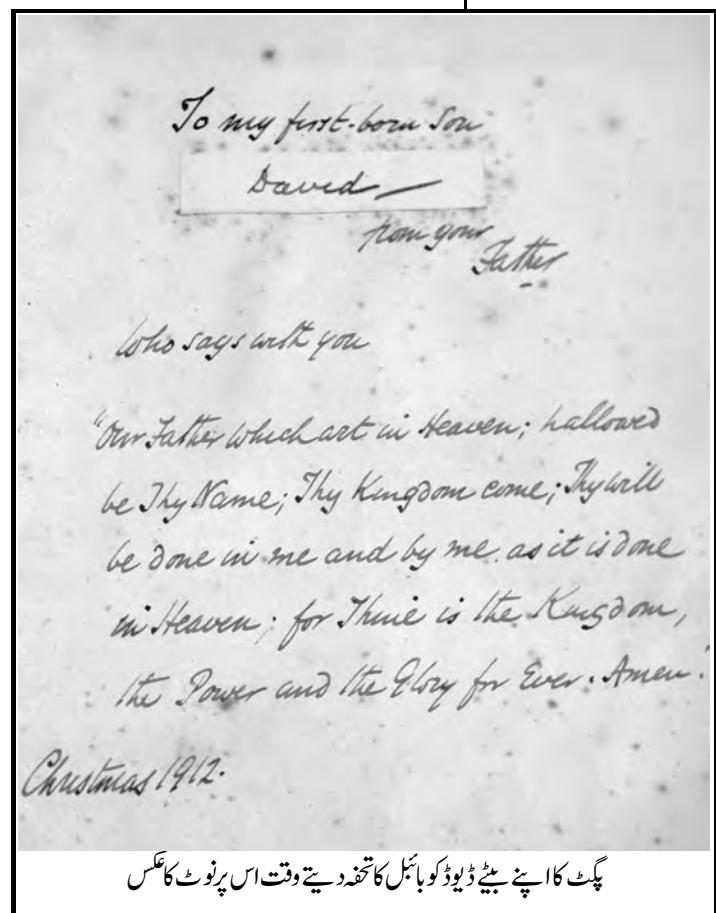 To my first-born Son
David —
from your
Father
Who says with you
"Our Father which art in Heaven; hallowed
be Thy Name; Thy Kingdom come; Thy will
be done in me and by me as it is done
in Heaven; for Thine is the Kingdom,
the Power and the Glory for Ever. Amen."
Christmas 1912.
پگٹ کا اپنے بیٹے ڈیوڈ کو بائبل کا تحفہ دیتے وقت اس پر نوٹ کا عکس